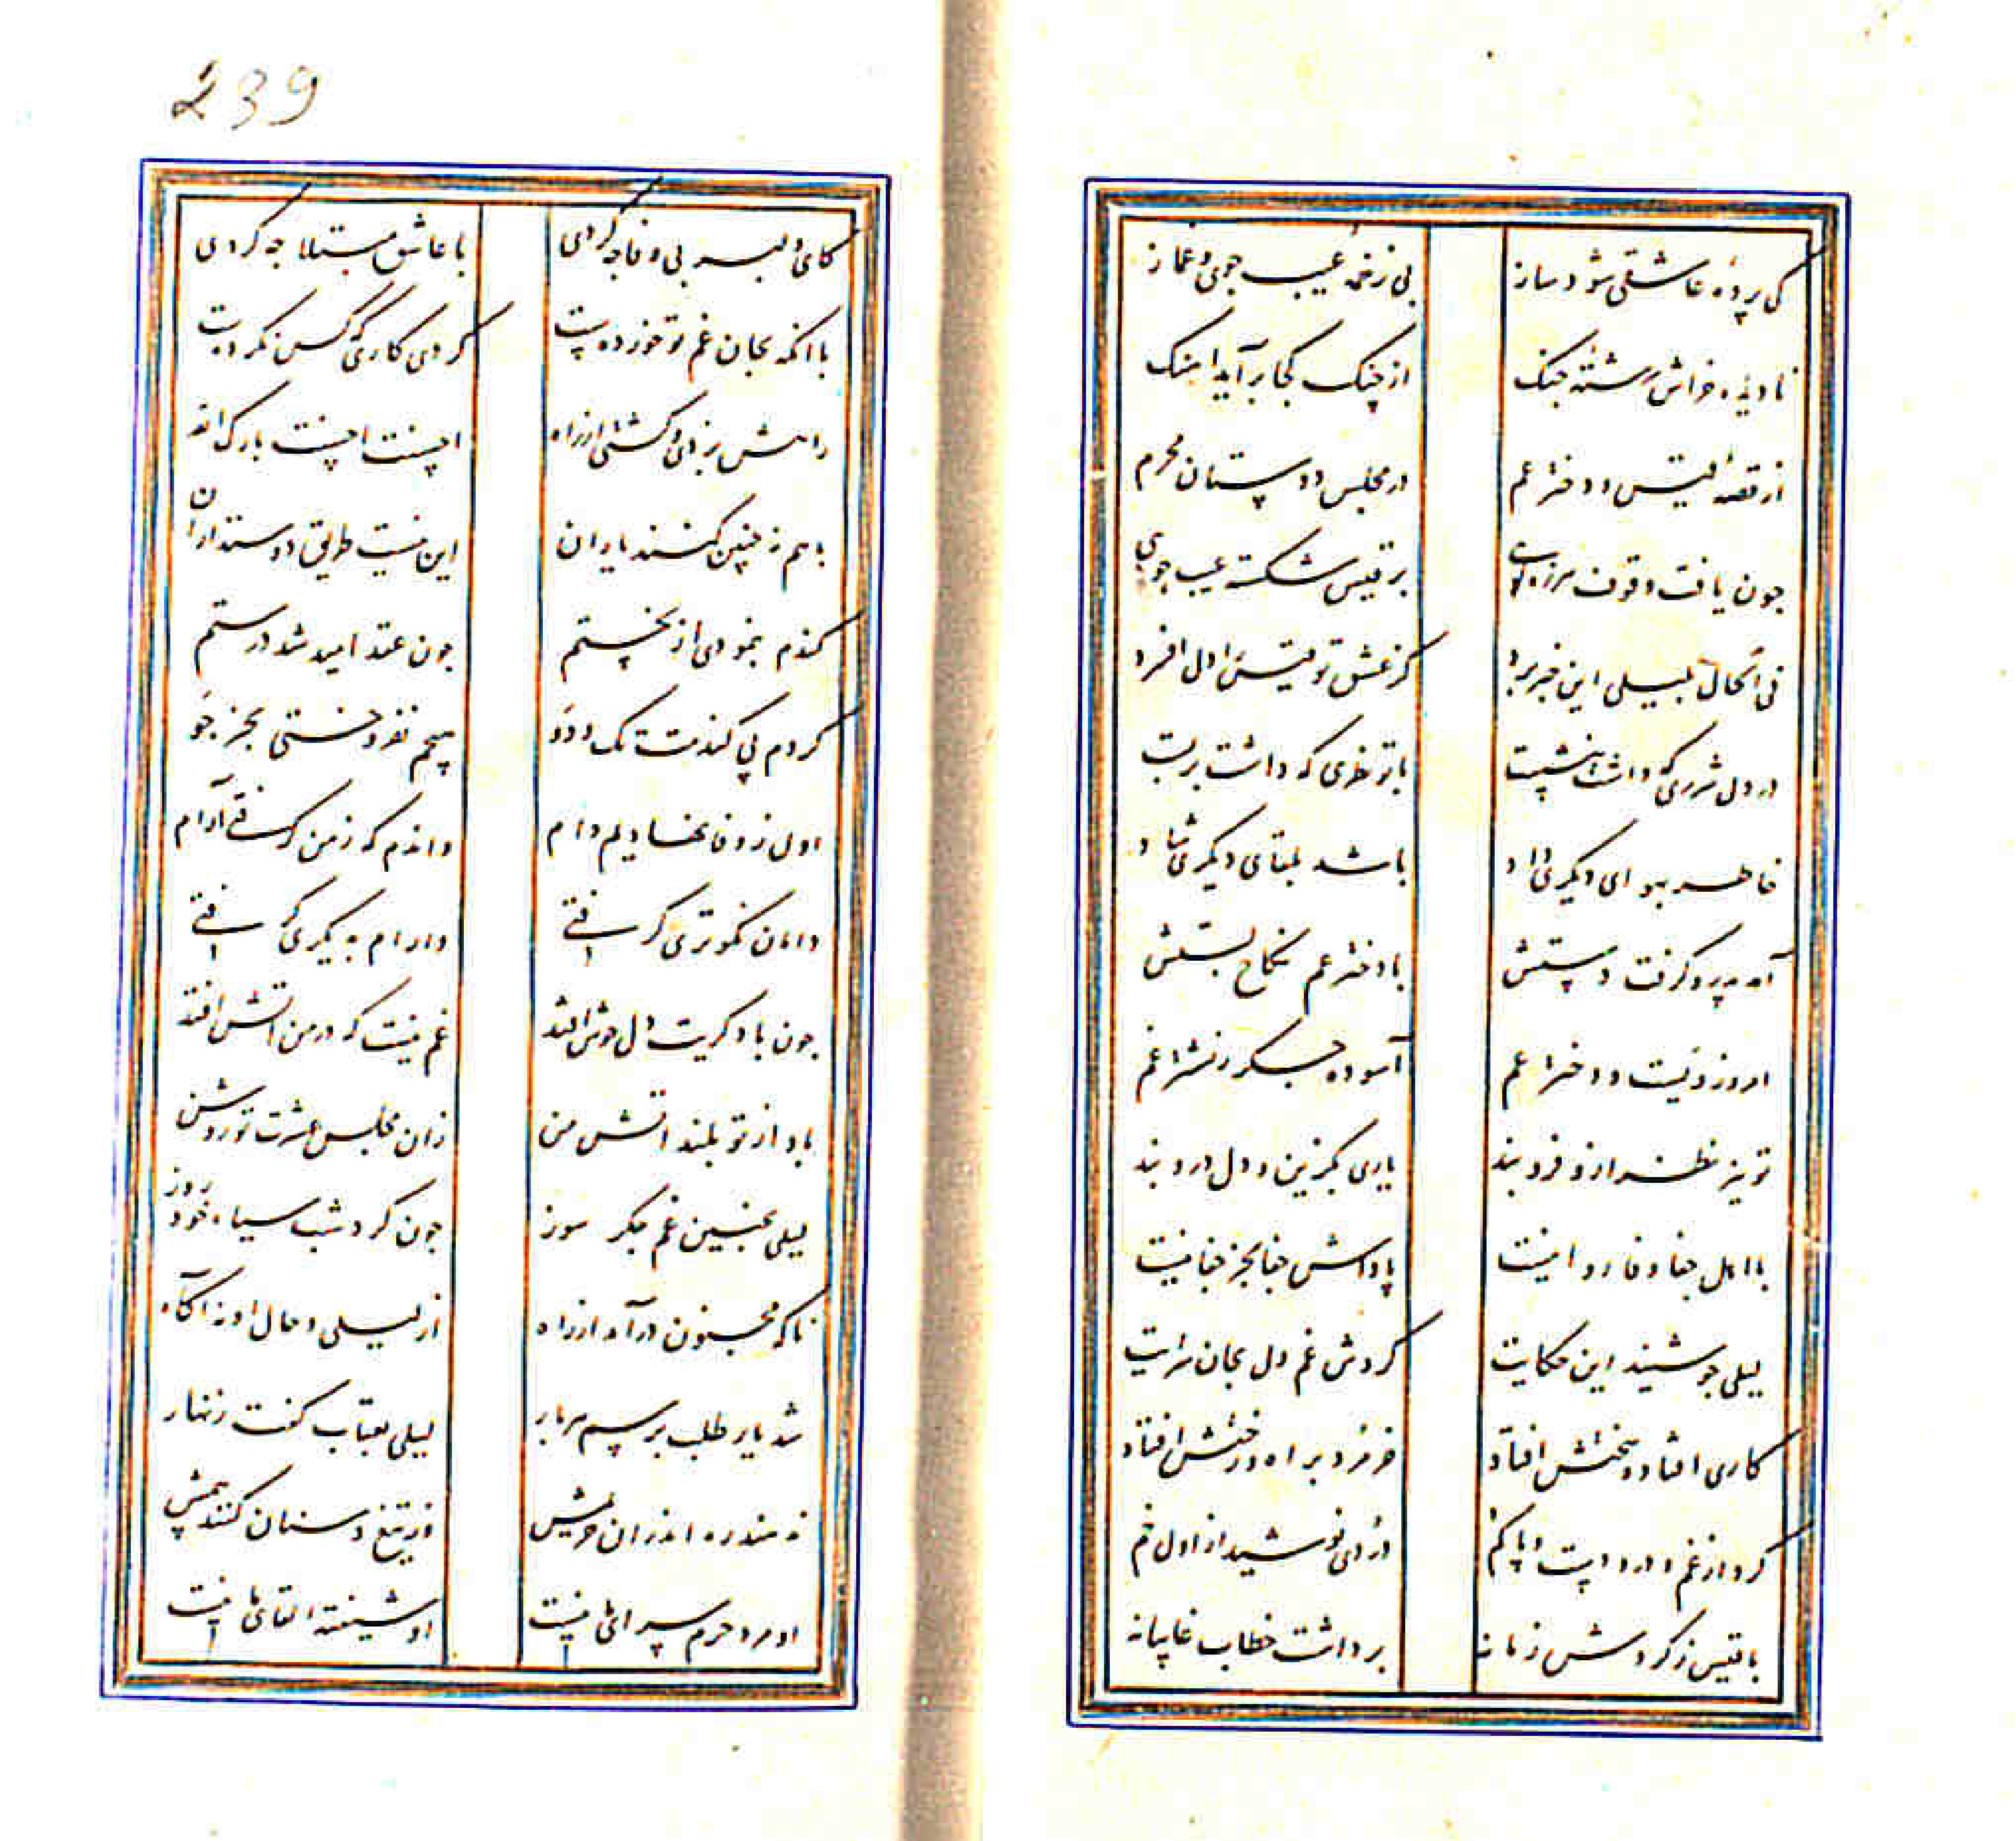 کی پرده عاشقی شود ساز بی زخمه عیب جوی و غماز
نادیده خراش رشته چنک از چنک کجا برآید آهنک
از قصه قیس و دختر عم در مجلس دوستان محرم
چون یافت وقوف هرزه‌گویی بر قیس شکسته عیب جویی
فی الحال بلیلی این خبر برد کز عشق تو قیس را دل افسرد
در دل شرری که داشت بنشست بار تو خری که داشت بربست
خاطر بهوای دیکری داد باشد بلقای دیکری شاد
آمد پدر و کرفت دستش با دختر عم نکاح بستش
امروز ویست و دختر عم آسوده جکر ز نشتر غم
تو نیز نظر ازو فرو بند یاری بکزین و دل درو بند
با اهل جفا وفا روا نیست پاداش جفا بجز جفا نیست
لیلی چو شنید این حکایت کردش غم دل بجان سرایت
کاری افتاد و سختش افتاد خر مرد براه و رختش افتاد
کرد از غم و درد دست و پا کم دردی نوشید از اول خم
با قیس ز کردش زمانه برداشت خطاب غایبانه
239
کای دلبر بی وفا چه کردی با عاشق مبتلا چه کردی
با آنکه بجان غم تو خوردست کردی کاری که کس نکردست
راهش بزدی و کشتی از راه احسنت احسنت بارک الله
باهم نه چنین کنند یاران این نیست طریق دوستداران
کندم بنمودی از نخستم چون عقد امید شد درستم
کردم پی کندمت تک و دو هیچم نفروختی بجز جو
اول ز وفا نهادیم دام واندم که ز من کرفتی آرام
دامان نکوتری کرفتی وآرام به دیکری کرفتی
چون با دکریت دل خوش افتد غم نیست که در من آتش افتد
باد از تو بلند آتش من زان مجلس عشرت تو روشن
لیلی بچنین غم جکر سوز چون کرد شب سیاه خود روز
ناکه مجنون درآمد از راه از لیلی و حال او نه آکاه
شد یار طلب برسم هر بار لیلی بعتاب کفت زنهار
ندهند ره اندران حریمش وز تیغ و سنان کنند بیمش
او مرد حرم سرای ما نیست او شیفته لقای ما نیست